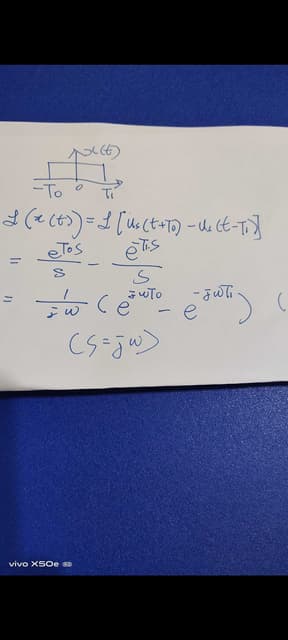 x(t)
-T₀ 0 T₁
ℒ(x(t)) = ℒ[uₛ(t+T₀) - uₛ(t-T₁)]
= e^{T₀s}/s - e^{-T₁s}/s
= 1/jω (e^{jωT₀} - e^{-jωT₁}) (
(s=jω)
vivo X50e